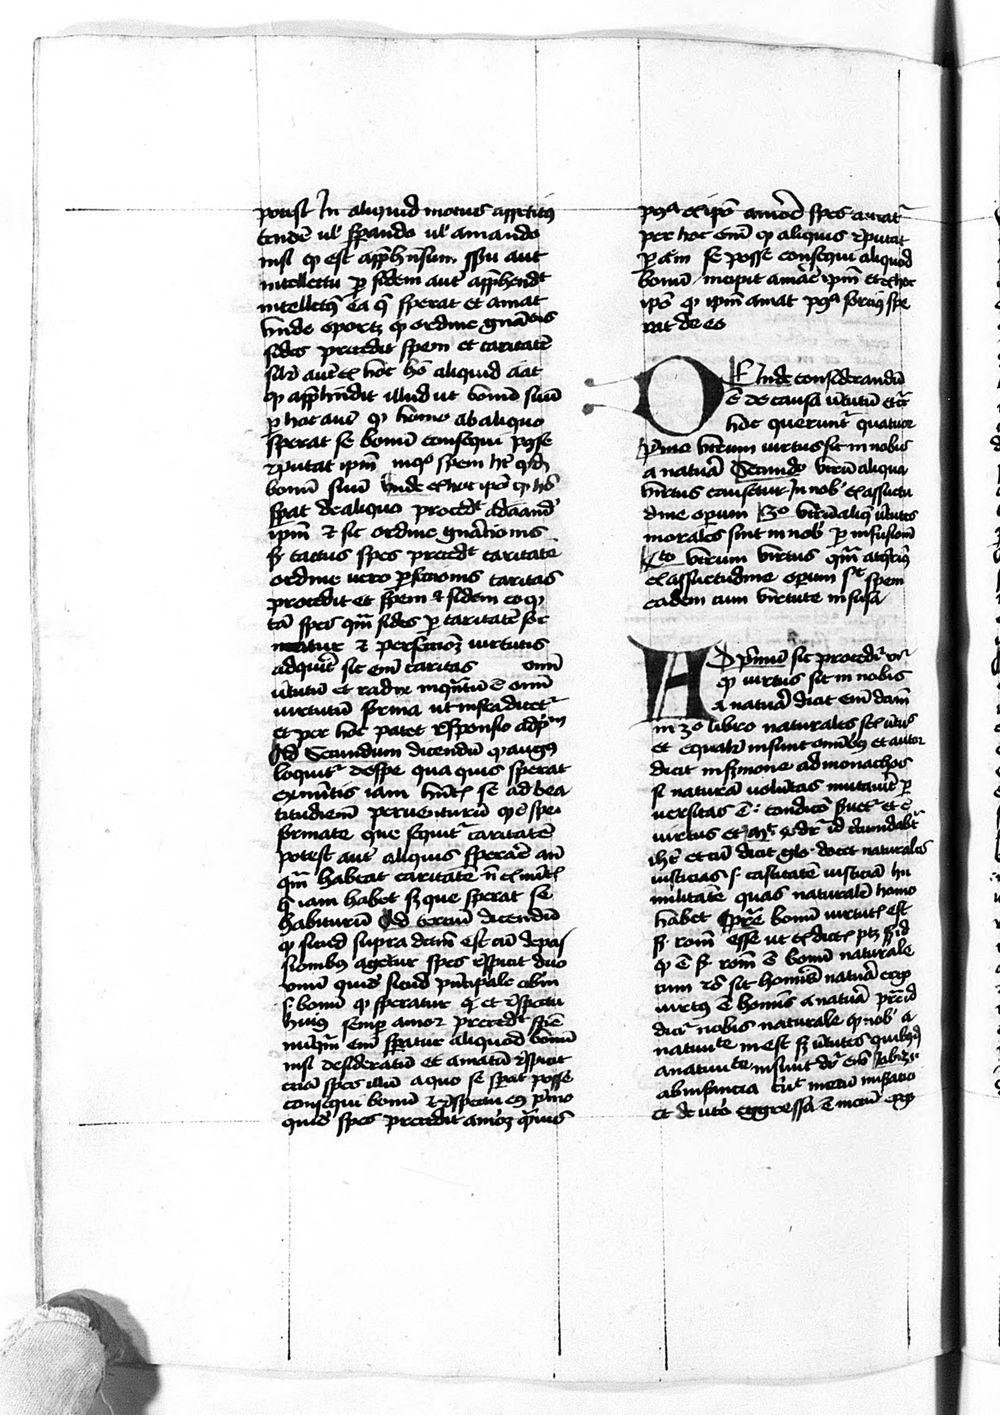 potest in aliquid motus appetitus
tendere vel sperando vel amando
nisi quod est apprehensum sensu aut
intellectu per fidem autem apprehendit
intellectus ea que sperat et amat
unde oportet quod ordine generationis
fides precedit spem et caritatem
similiter autem ex hoc homo aliquid amat
quod apprehendit illud ut bonum suum
per hoc autem quod homo ab aliquo
sperat se bonum consequi posse
reputat ipsum in quo spem habet quoddam
bonum suum unde ex hoc ipso quod homo
sperat de aliquo procedit ad amandum
ipsum et sic ordine generationis
secundum actus spes precedit caritatem
ordine vero perfectionis caritas
precedit et spem et fidem eo quod
tam spes quam fides per caritatem for
matur et perfectionem virtutis
adquirit sic enim caritas omnium
virtutum et radix inquantum est omnium
virtutum forma ut infra dicetur
et per hoc patet responsio ad primum
Ad Secundum dicendum quod augustinus
loquitur de spe qua quis sperat
ex meritis iam habitis se ad bea
titudinem perventurum quod est spei
formate que sequitur caritatem
potest autem aliquis sperare ante
quam habeat caritatem non ex meritis
que iam habet sed que sperat se
habiturum Ad tertium dicendum
quod sicud supra dictum est cum de pas
sionibus ageretur spes respicit duo
unum quidem sicud principale obiectum
scilicet bonum quod speratur et respectu
huius semper amor precedit spem
nunquam enim speratur aliquod bonum
nisi desideratum et amatum respicit
etiam spes illum a quo se sperat posse
consequi bonum et respectu eius primo
quidem spes precedit amorem quamvis
postea ex ipso amore spes augeatur
per hoc enim quod aliquis reputat
per aliquem se posse consequi aliquod
bonum incipit amare ipsum et ex hoc
ipso quod ipsum amat postea fortius spe
rat de eo
Deinde considerandum
est de causa virtutum et circa
hoc queruntur quatuor
primo utrum virtus sit in nobis
a natura Secundo utrum aliqua
virtus causetur in nobis ex assuetu
dine operum 3o utrum alique virtutes
morales sint in nobis per infusionem
4to utrum virtus quam acquirimus
ex assuetudine operum sit eiusdem speciei
cum virtute infusa
Ad primum sic proceditur videtur
quod virtus sit in nobis
a natura dicit enim damascenus
in 3o libro naturales sunt virtutes
et equaliter insunt omnibus et antonius
dicit in sermone ad monachos
si naturam voluntas mutaverit per
versitas est conditio servetur et est
virtus et mathei 4 dicitur circumibat
ihesus et cum dicit glosa docet naturales
iusticias scilicet castitatem iusticiam hu
militatem quas naturaliter homo
habet Preterea bonum virtutis est
secundum rationem esse ut ex dictis patet sed id
quod est secundum rationem est bonum naturale
cum ratio sit hominis natura ergo
virtus est homini a natura preterea id
dicitur nobis naturale quod nobis a
nativitate inest sed virtutes quibusdam
a nativitate insunt dicitur enim Iob 31
ab infantia crevit mecum miseratio
et de utero egressa est mecum ergo